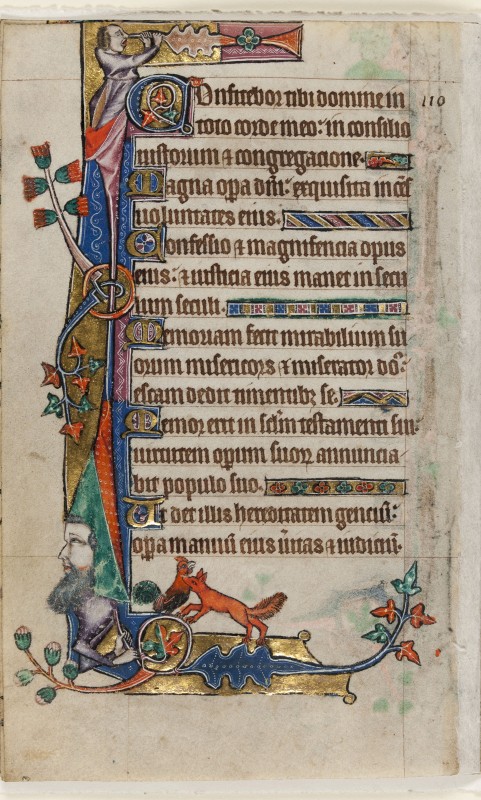 Confitebor tibi domine in
110
toto corde meo: in consilio
iustorum & congregacione.
Magna opa dni: exquisita in oes
uoluntates eius.
Confessio & magnificencia opus
eius: & iusticia eius manet in secu
lum seculi.
Memoriam fecit mirabilium su
orum misericors & miserator do:
escam dedit timentibz se.
Memor erit in sclm testamenti sui:
uirtutem opum suorz annuncia
bit populo suo.
Ut det illis hereditatem genciu:
opa manuu eius uitas & iudiciu.